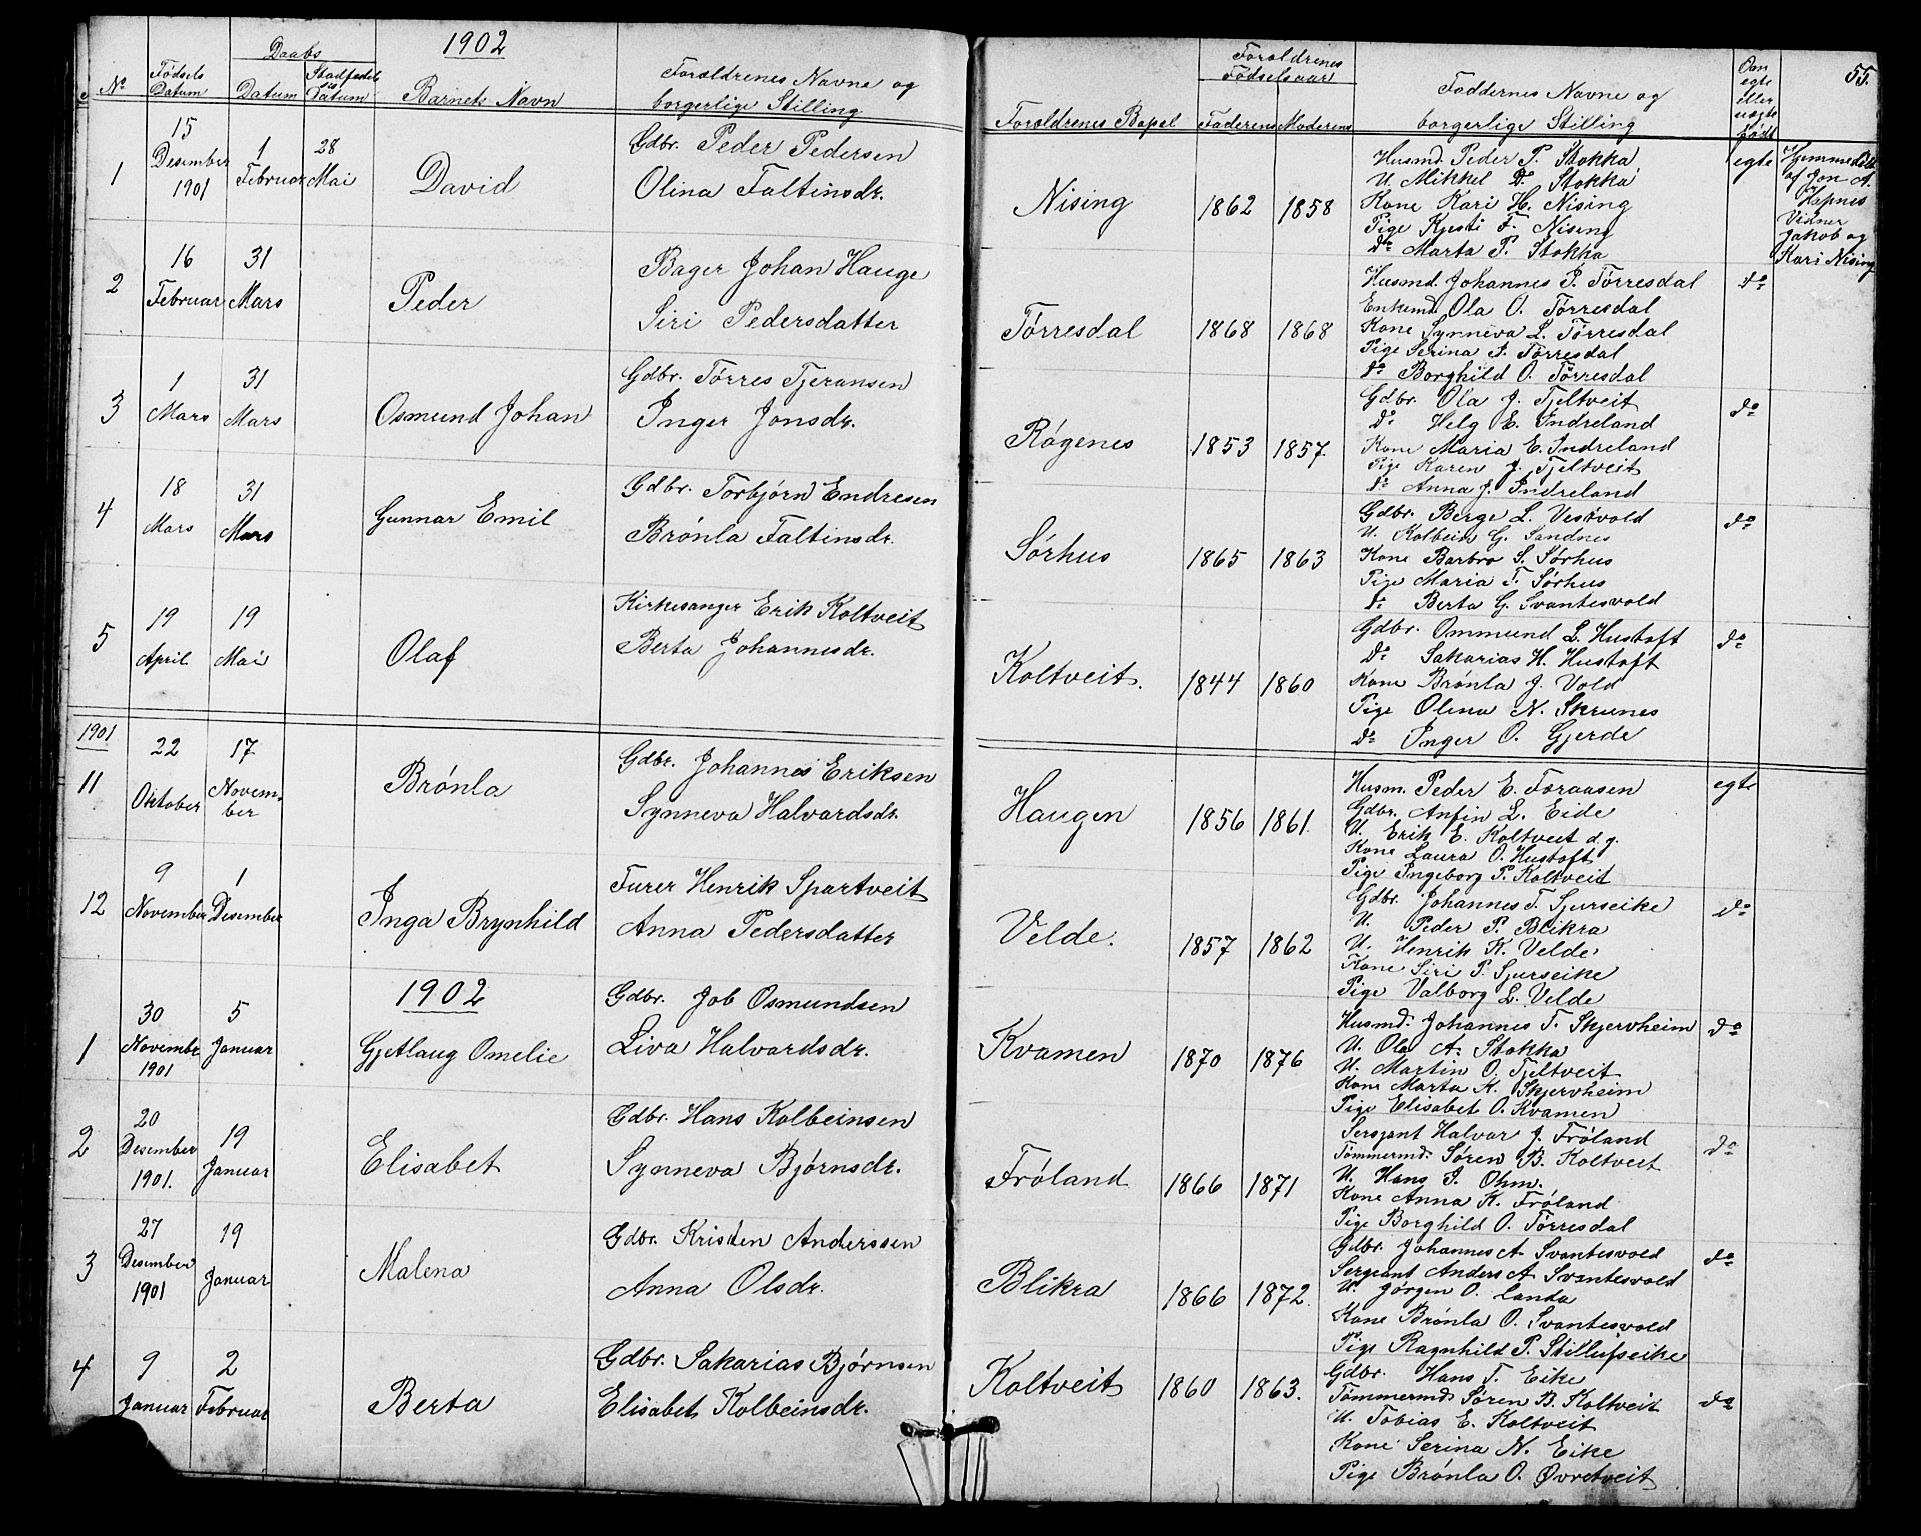 1902
Daabs
Nº
Fødsels
Datum
Datum
Stadfæstelses
Datum
Barnets Navn
Forældrenes Navne og
borgerlige Stilling
Forældrenes Bopæl
Forældrenes
Fødselsaar
Faderens Moderens
Faddernes Navne og
borgerlige Stilling
Om
egte
eller
uegte
født
55.
1
15
Desember
1901
1
Februar
28
Mai
David
Gdbr. Peder Pedersen
Olina Faltinsdr.
Nising
1862 1858
Husmd. Peder P. Stokka
U. Mikkel D. Stokka
Kone Kari H. Nising
Pige Kjesti F. Nising
do Marta P. Stokka
egte
Hjemmedøbt
af Jon A.
Hapnes
Vidner
Jakob og
Kari Nising
2
16
Februar
31
Mars
Peder
Bager Johan Hauge
Siri Pedersdatter
Tørresdal
1868 1868
Husmd. Johannes P. Tørresdal
Enkemd. Ola O. Tørresdal
Kone Synneva L. Tørresdal
Pige Serina P. Tørresdal
do Borghild O. Tørresdal
do
3
1
Mars
31
Mars
Osmund Johan
Gdbr. Tørres Tjeransen
Inger Jonsdr.
Røgenes
1853 1857.
Gdbr. Ola J. Tjeltveit
Do Helg E. Indreland
Kone Maria E. Indreland
Pige Karen J. Tjeltveit
do Anna J. Indreland
do
4
18
Mars
31
Mars
Gunnar Emil
Gdbr. Torbjørn Endresen
Brønla Faltinsdr.
Sørhus
1865 1863
Gdbr. Berge L. Vestvold
U. Kolbein G. Sandnes
Kone Barbro S. Sørhus
Pige Maria T. Sørhus
do Berta G. Svantesvold
do
5
19
April
19
Mai
Olaf
Kirkesanger Erik Koltveit
Berta Johannesdr.
Koltveit.
1844 1860
Gdbr. Ommund L. Hustoft
Do Sakarias H. Hustoft
Kone Brønla J. Vold
Pige Olina N. Skrunes
do Inger O. Gjerde
do
1901
11
22
Oktober
17
Novem-
ber
Brønla
Gdbr. Johannes Eriksen
Synneva Halvardsdr.
Haugen
1856 1861.
Husm. Peder E. Foraasen
Gdbr. Anfin L. Eide
U. Erik E. Koltveit d.y.
Kone Laura O. Hustoft
Pige Ingeborg P. Koltveit
egte
12
9
November
1
Desember
Inga Brynhild
Furer Henrik Spartveit
Anna Pedersdatter
Velde.
1857 1862
Gdbr. Johannes T. Sjurseike
U. Peder P. Blikra
U. Henrik K. Velde
Kone Siri P. Sjurseike
Pige Valborg L. Velde
do
1902
1
30
Novembr
1901
5
Januar
Gjetlaug Omelie
Gdbr. Job Osmundsen
Liva Halvardsdr.
Kvamen
1870 1876
Husmd. Johannes T. Skjervheim
U. Ola A. Stokka
U. Martin O. Tjeltveit
Kone Marta K. Skjervheim
Pige Elisabet O. Kvamen
do
2
20
Desember
1901.
19
Januar
Elisabet
Gdbr. Hans Kolbeinsen
Synneva Bjørnsdr.
Frøland
1866 1871
Sersjant Halvar J. Frøland
Tømmermd. Søren B. Koltveit
U. Hans J. Ohm.
Kone Anna K. Frøland
Pige Borghild O. Tørresdal
do
3
27
Desember
1901
19
Januar
Malena
Gdbr. Kristen Anderssen
Anna Olsdr.
Blikra
1866 1872.
Gdbr. Johannes A. Svantesvold
Sergeant Anders A. Svantesvold
U. Jørgen O. Landa
Kone Brønla O. Svantesvold
Pige Ragnhild P. Stillufseike
do
4
9
Januar
2
Februar
Berta
Gdbr. Sakarias Bjørnsen
Elisabet Kolbeinsdr.
Koltveit
1860 1863.
Gdbr. Hans T. Eike
Tømmermd. Søren B. Koltveit
U. Tobias E. Koltveit
Kone Serina N. Eike
Pige Brønla O. Øvretveit
do